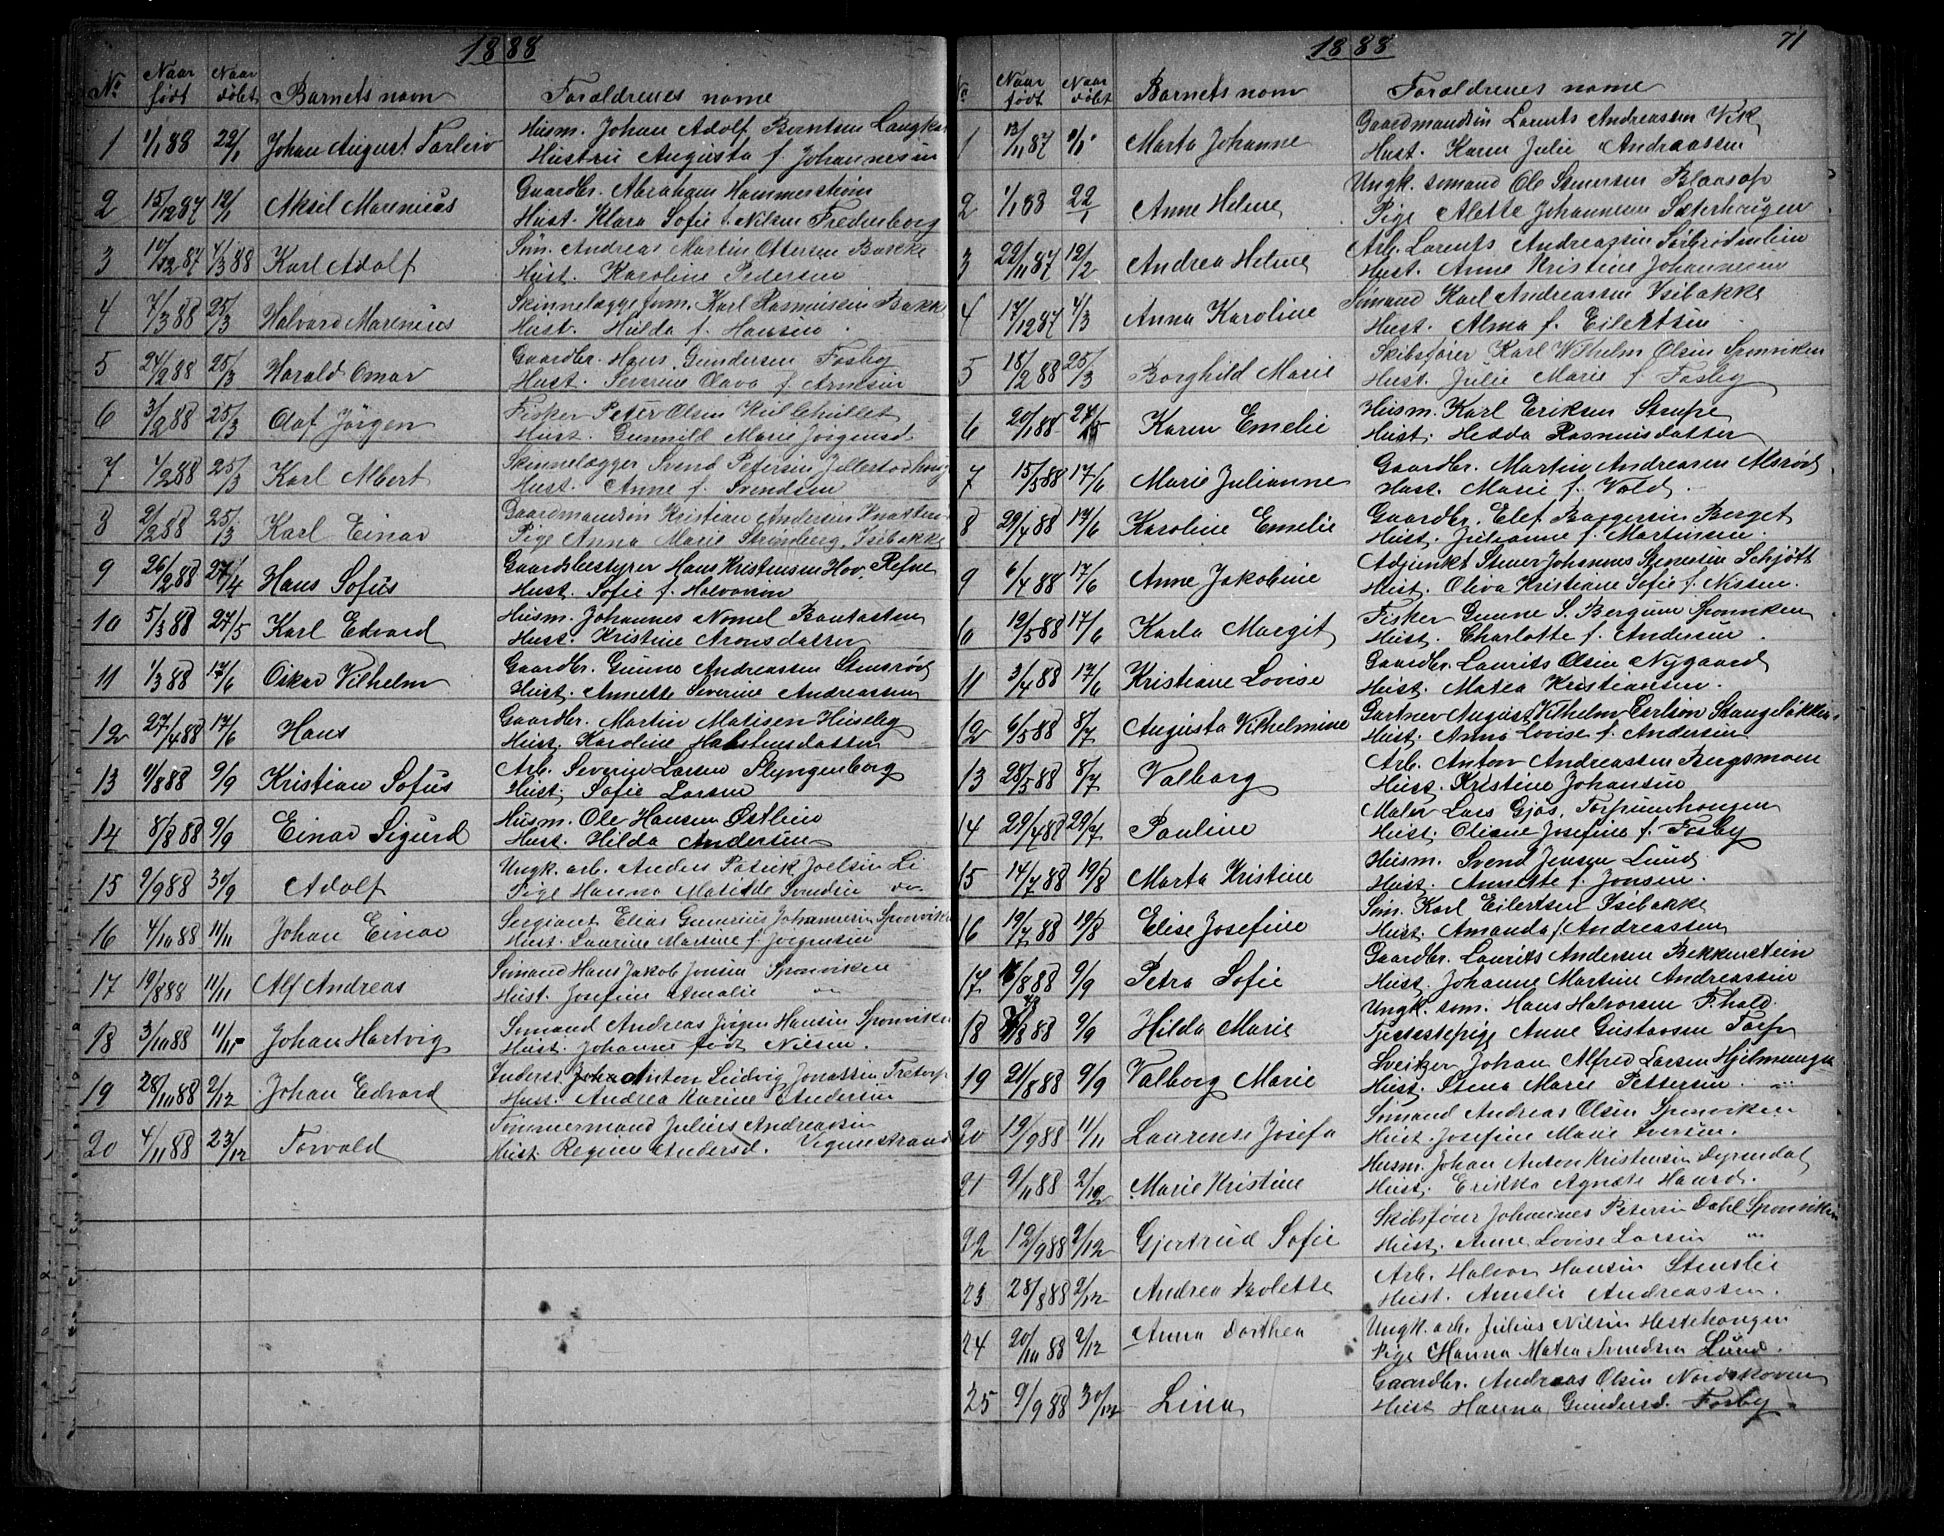 1888
No Naar født Naar døbt Barnets navn Forældrenes navne
1 1/1 88 22/1 Johan August Torleiv Husm. Johan Adolf Berntsen
Hustru Augusta f. Johannesen
2 15/12 87 12/1 Aksil Marenius Gaardbr. Abraham Hammerstrøm
Hust. Klara Sofie f. Nilsen Fredenborg
3 10/12 87 4/3 88 Karl Adolf Søm. Andreas Martin Ottersen Bakke
Hust. Karoline Pedersen
4 7/3 88 25/3 Halvard Marenius Skinnelæggerform. Karl Rasmussen Bakke
Hust. Hilda f. Hansen
5 24/2 88 25/3 Harald Omar Gaardbr. Hans Gundersen Fosby
Hust. Severine Olava f. Arnesen
6 3/2 88 25/3 Olaf Jörgen Fisker Peter Olsen
Hust. Gunnild Marie Jörgensd
7 4/2 88 25/3 Karl Albert Skinnelægger Svend Petersen
Hust. Anne f. Svendsen
8 2/2 88 25/3 Karl Einar Gaardmandsøn Kristian Andersen
Pige Anna Marie Strømberg, Isebakke
9 26/2 88 27/4 Hans Sofus Gaardsbestyrer Hans Kristensen Hov, Refne
Hust. Sofie f. Halvorson
10 5/3 88 27/5 Karl Edvard Husm. Johannes Nomel Bautasten
Hust. Kristine Aronsdatter
11 1/3 88 17/6 Oskar Vilhelm Gaardbr. Gunno Andreassen Stensrød
Hust. Annette Severine Andreassen
12 27/4 88 17/6 Hans Gaardbr. Martin Matisen Huseby
Hust. Karoline Halstensdatter
13 1/8 88 9/9 Kristian Sofus Arb. Severin Larsen Slyngenborg
Hust. Sofie Larsen
14 8/8 88 9/9 Einar Sigurd Husm. Ole Hansen Østlien
Hust. Hilda Andersen
15 9/9 88 30/9 Adolf Ungk. arb. Anders Patrik Joelsen Li
Pige Hanna Matilde Svendsen do
16 4/10 88 11/11 Johan Einar Sergiant Elias Gunerius Johannesen Sponviken
Hust. Laurine Martine f. Jörgensen
17 19/8 88 11/11 Alf Andreas Sømand Hans Jakob Jonsen Sponviken
Hust. Josefine Amalie
18 3/10 88 11/11 Johan Hartvig Sømand Andreas Jörgen Hansen Sponviken
Hust. Johanne født Nilsen.
19 28/10 88 2/12 Johan Edvard Indersd Johan Anton Ludvig Jonassen
Hust. Andrea Karine Andersen
20 4/11 88 23/12 Torvald Tömmermand Julius Andreassen
Hust. Regine Andersd.
1888 71
No Naar født Naar døbt Barnets navn Forældrenes navne
1 13/11 87 Marta Johanne Gaardmandsön Larents Andreassen Vik
Hust. Karen Julie Andreassen
2 1/1 88 22/1 Anne Helene Ungk. sömand Ole Stenersen
Pige Alette Johannesen Sæterhaugen
3 22/11 87 12/2 Andrea Helene Arb. Larents Andreassen
Hust. Anne Kristine Johannesen
4 17/12 87 4/3 Anna Karoline Sömand Karl Andreassen Isebakke
Hust. Alma f. Eilertsen
5 18/2 88 25/3 Borghild Marie Skibsfører Karl Vilhelm Olsen Sponviken
Hust. Julie Marie f. Fosby
6 20/1 88 27/5 Karen Emelie Husm. Karl Eriksen Strupe
Hust. Hedda Rasmusdatter
7 15/5 88 17/6 Marie Julianne Gaardbr. Martin Andreasen Alsrød
Hust. Marie f. Vold.
8 29/4 88 17/6 Karoline Emelie Gaardbr. Elef Baggersen Berget
Hust. Julianne f. Martinsen.
9 6/4 88 17/6 Anne Jakobine Adjunkt Stener Johannes Stenersen Schjøtt
Hust. Oliva Kristiane Sofie f. Nissen.
10 12/5 88 17/6 Karla Margit Fisker Gunne S. Bergum Sponviken
Hust. Charlotte f. Andersen.
11 3/4 88 17/6 Kristiane Lovise Gaardbr. Laurits Olsen Nygaard
Hust. Matea Kristiansen.
12 6/5 88 8/7 Augusta Vilhelmine Gartner August Vilhelm Carlson Stangeløkken
Hust. Anna Lovise f. Andersen
13 28/5 88 8/7 Valborg Arb. Anton Andreassen Bergsmoen
Hust. Kristine Johansen
14 29/4 88 29/7 Pauline Maler Lars Gjøs,
Hust. Oliane Josefine f. Fosby
15 14/7 88 19/8 Marta Kristine Husm. Svend Jensen Lund
Hust. Annette f. Jonsen.
16 19/7 88 19/8 Elise Josefine Söm. Karl Eilertsen Isebakke
Hust. Amanda f Andreassen
17 16/8 88 9/9 Petra Sofie Gaardbr. Lauriks Andersen Bekkenstein
Hust. Johanne Martine Andreassen
18 88 9/9 Hilda Marie Ungk. söm. Hans Halvorsen F.hald.
Tjenestepige Anne Gustavsen Torp
19 21/8 88 9/9 Valborg Marie Sveitzer Johan Alfred Larsen
Hust. Stena Marie Pettersen
20 19/9 88 11/11 Laurense Josefa Sömand Andreas Olsen Sponviken
Hust. Josefine Marie Iversen.
21 9/11 88 2/12 Marie Kristine Husm. Johan Anton Kristensen Dyrendal
Hust. Erikka Agnete Hansd.
22 12/9 88 2/12 Gjertrud Sofie Skibsfører Johannes Petersen Dahl Sponviken
Hust. Anne Lovise Larsen
23 28/8 88 2/12 Andrea Bolette Arb. Halvor Hansen Stenslie
Hust. Amalie Andreassen.
24 20/10 88 2/12 Anna Dorthea Ungk. arb. Julius Nilsen Hestehaugen
Pige Hanna Matea Svendsen Lund.
25 9/9 88 30/12 Lina Gaardbr. Andreas Olsen Nordskoven
Hust Hanna Gundersd. Fosby